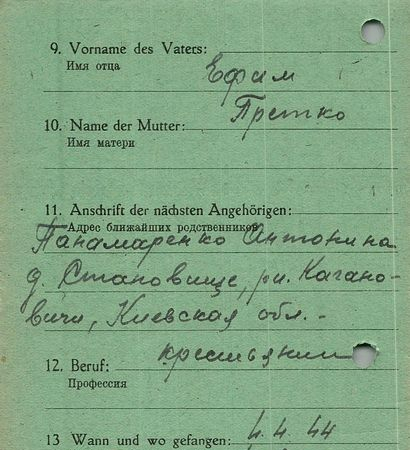 9. Vorname des Vaters:
Имя отца
Ефим
Претко
10. Name der Mutter:
Имя матери
11. Anschrift der nächsten Angehörigen:
Адрес ближайших родственников
Панамаренко Антонина
д. Становище, рн. Кагано-
вичи, Киевская обл. -
крестьянин
12. Beruf:
Профессия
13 Wann und wo gefangen: 4. 4. 44